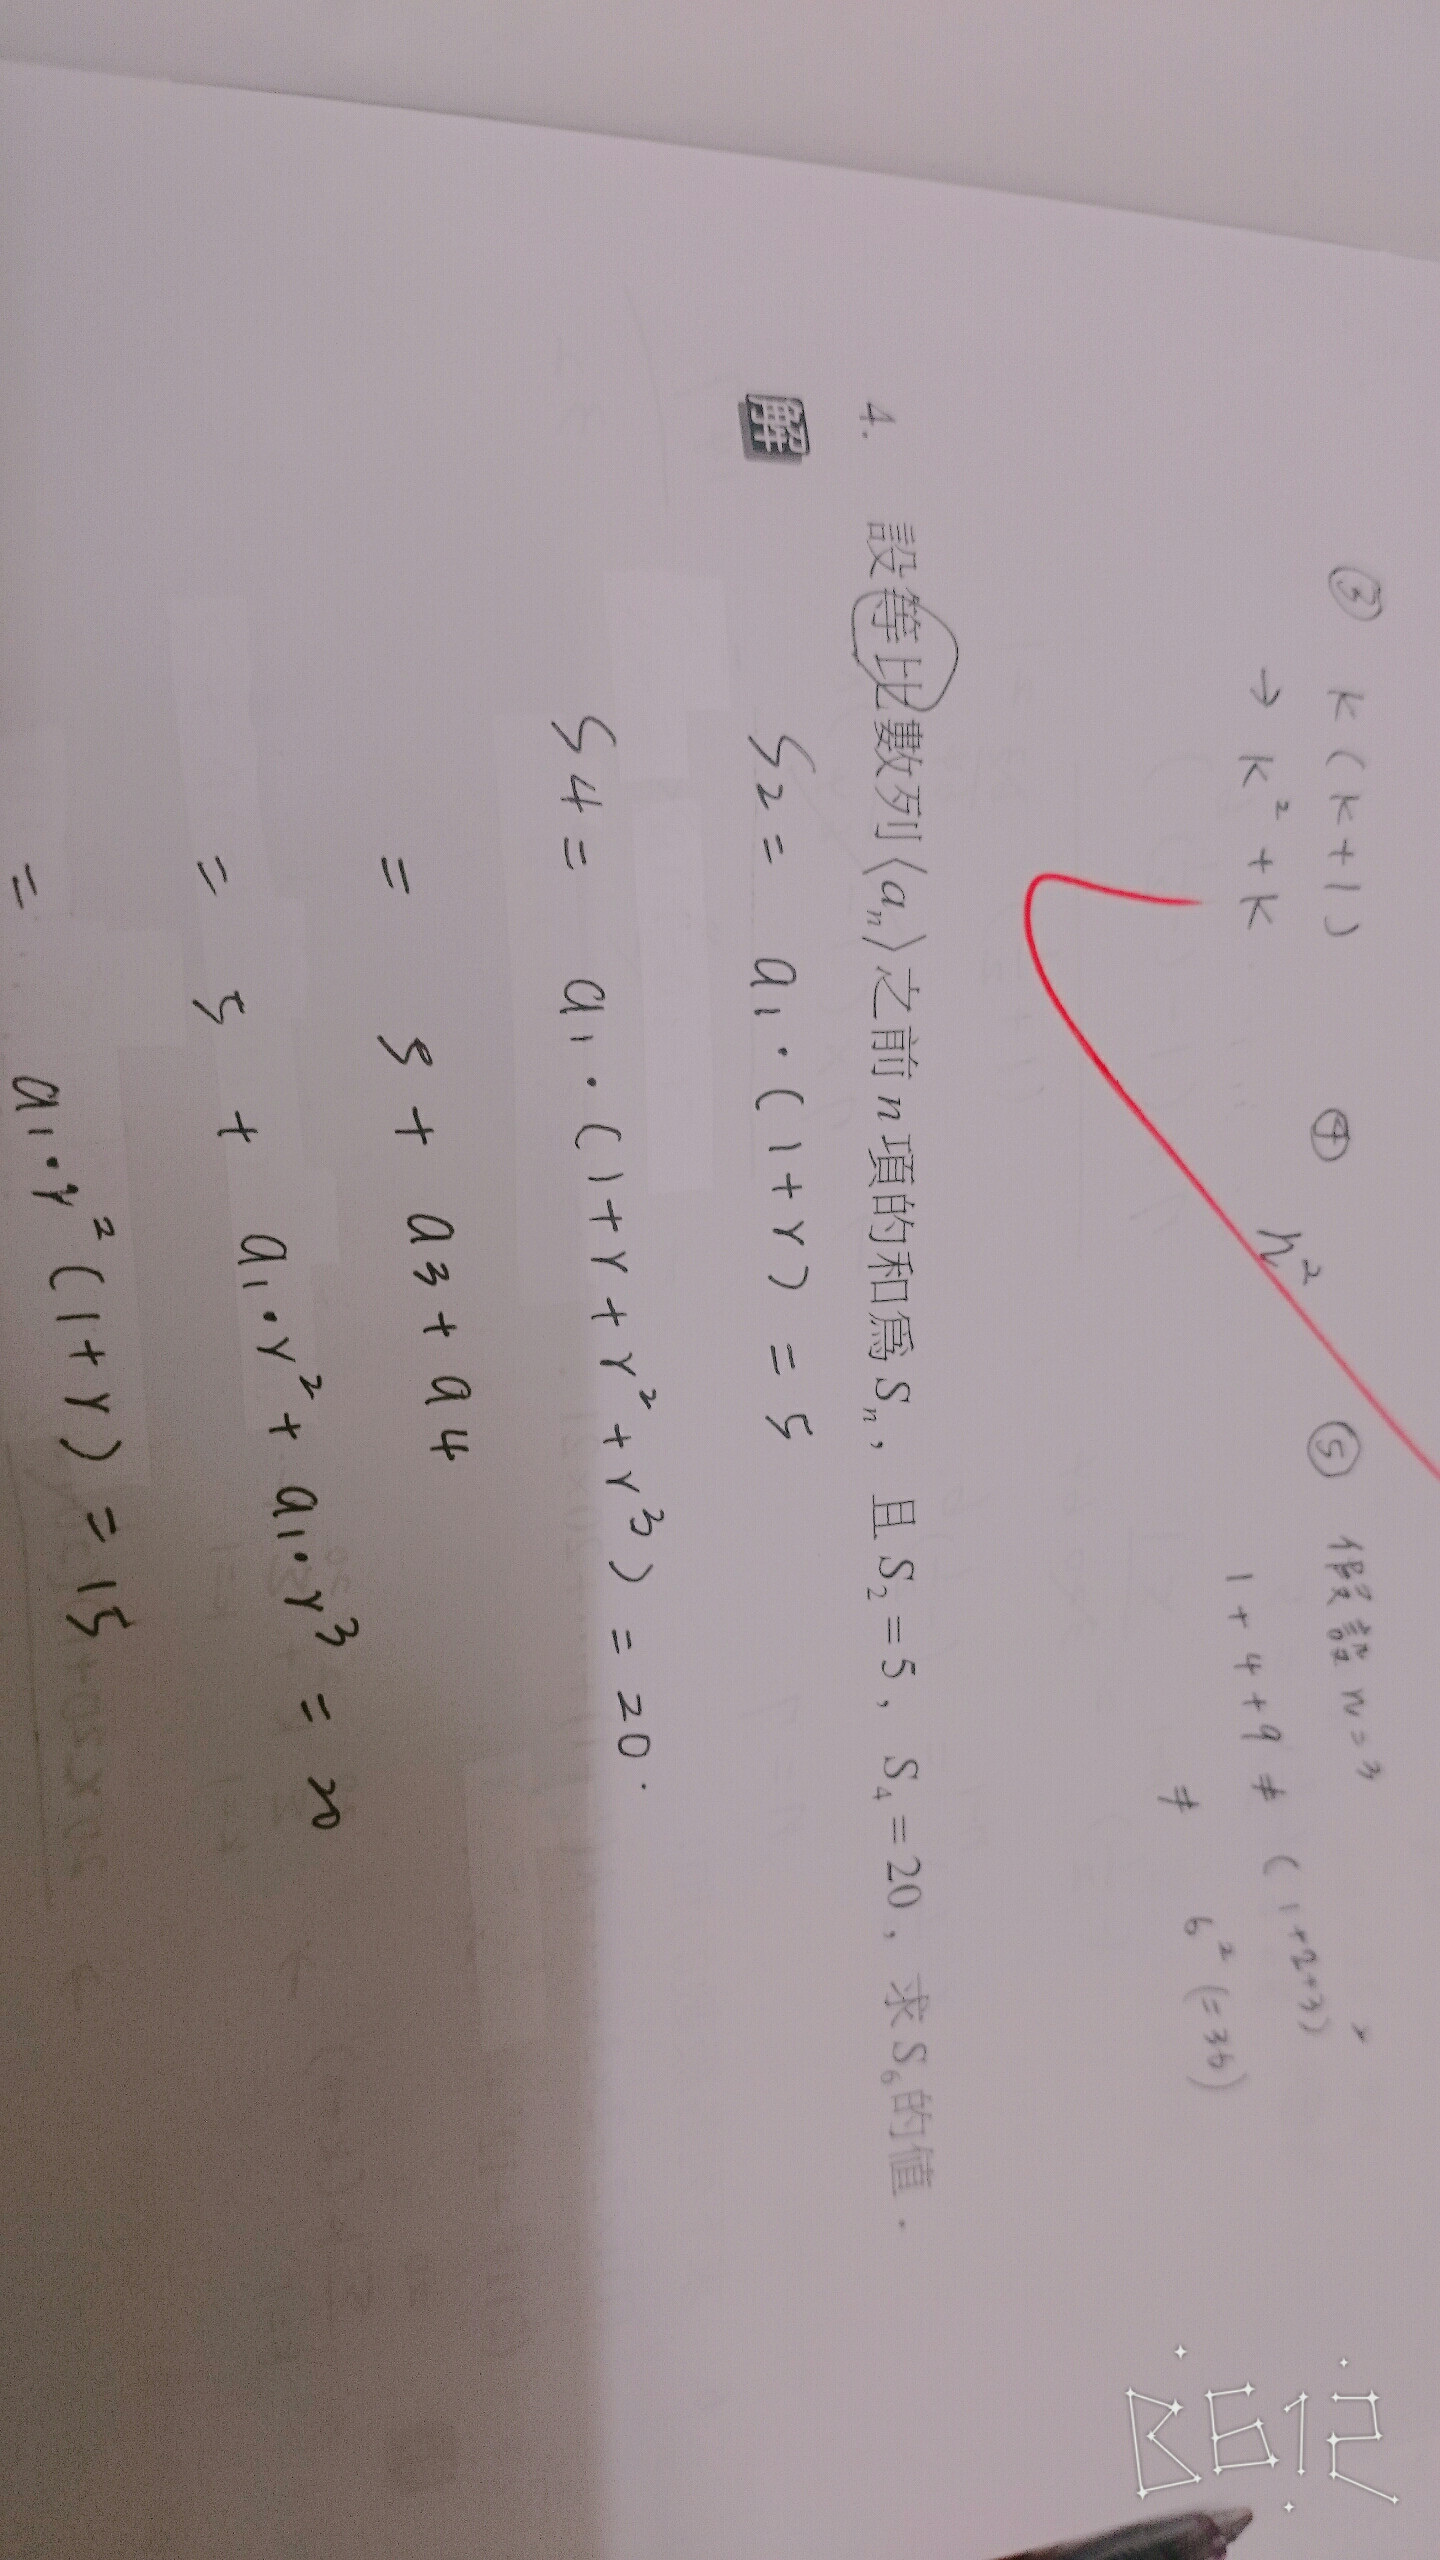 ③ k(k+1)
→ k²+k
④ n²
⑤ 假設 n=3
1+4+9 ≠ (1+2+3)²
≠ 6²(=36)
4. 設等比數列〈aₙ〉之前n項的和為Sₙ，且S₂=5，S₄=20，求S₆的值．
解 S2 = a1·(1+r) = 5
S4 = a1·(1+r+r²+r³) = 20
= 5 + a3 + a4
= 5 + a1·r² + a1·r³ = 20
= a1·r²(1+r) = 15
B612